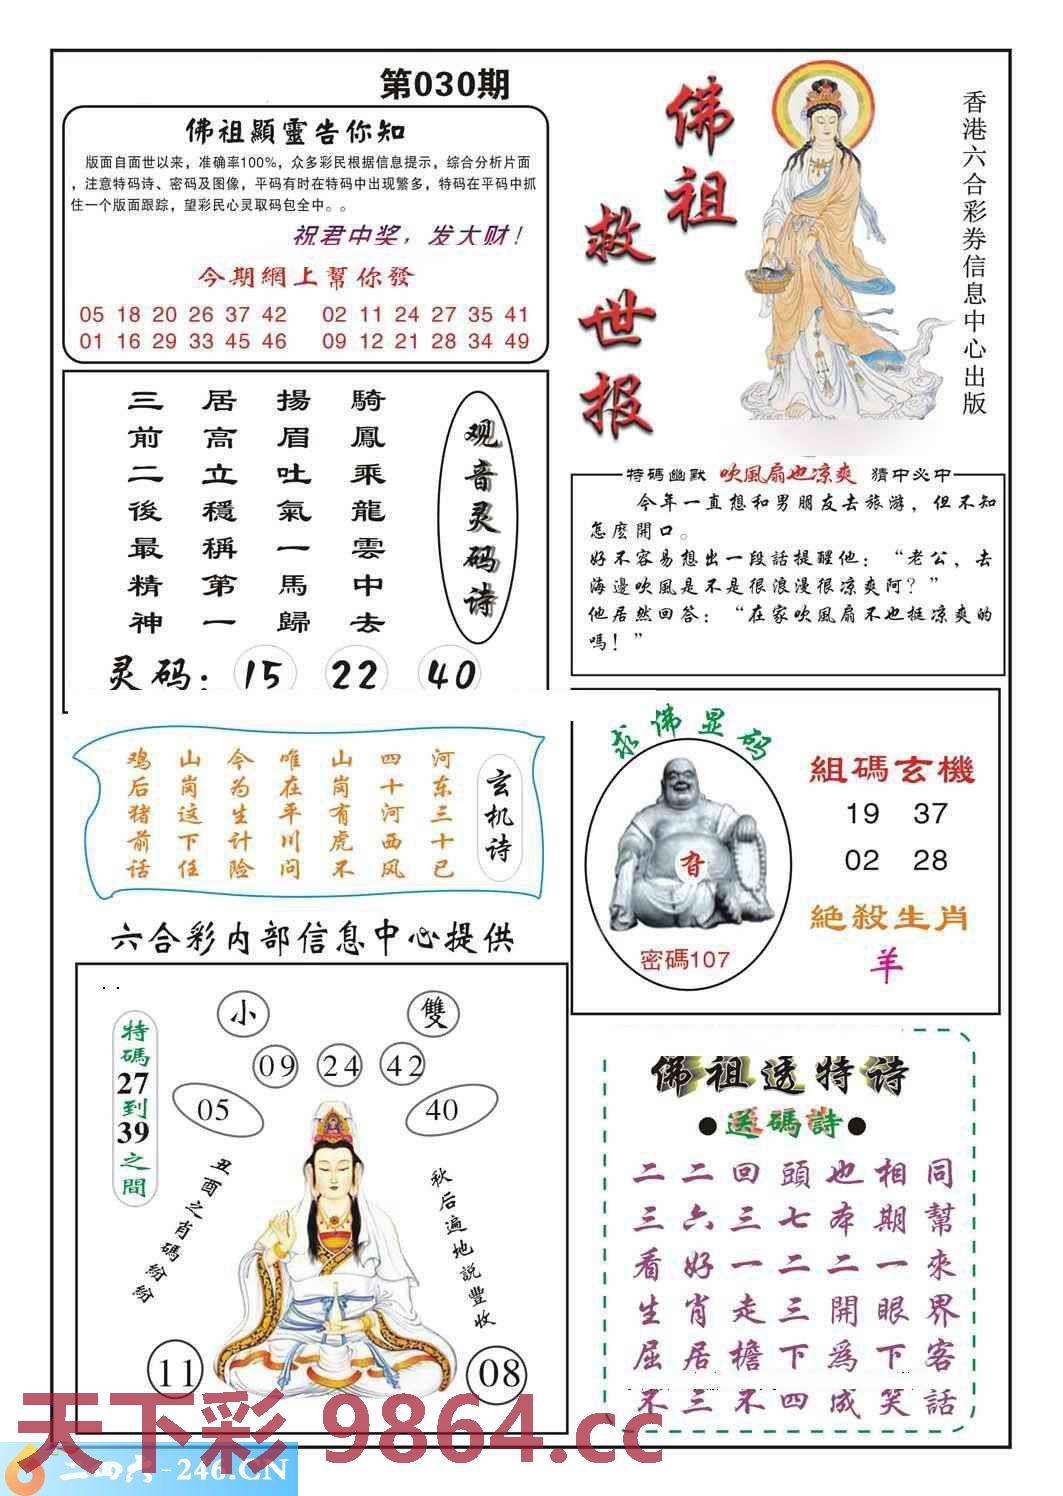 第030期
佛祖顯靈告你知
版面自面世以来，准确率100%，众多彩民根据信息提示，综合分析片面
，注意特码诗、密码及图像，平码有时在特码中出现繁多，特码在平码中抓
住一个版面跟踪，望彩民心灵取码包全中。。
祝君中奖，发大财！
今期網上幫你發
05 18 20 26 37 42 02 11 24 27 35 41
01 16 29 33 45 46 09 12 21 28 34 49
佛祖
救世报
香港六合彩券信息中心出版
观音灵码诗
騎鳳乘龍雲中去
揚眉吐氣一馬歸
居高立穩稱第一
三前二後最精神
灵码：15 22 40
特碼幽默 吹風扇也凉爽 猜中必中
今年一直想和男朋友去旅游，但不知
怎麽開口。
好不容易想出一段話提醒他：“老公，去
海邊吹風是不是很浪漫很凉爽阿？”
他居然回答：“在家吹風扇不也挺凉爽的
嗎！”
玄机诗
河东三十已
四十河西风
山岗有虎不
唯在平川问
今为生计险
山岗这下任
鸡后猪前话
求佛显码
密碼107
組碼玄機
19 37
02 28
絶殺生肖
羊
六合彩内部信息中心提供
特碼27到39之間
小 雙
09 24 42
05 40
丑酉之肖碼紛紛
秋后遍地説豐收
11 08
佛祖透特诗
●送碼詩●
同幫來界客話
相期一眼下笑
也本二開爲成
頭七二三下四
回三一走檐不
二六好肖居三
二三看生屈不
天下彩 9864.cc
二四六-246.CN